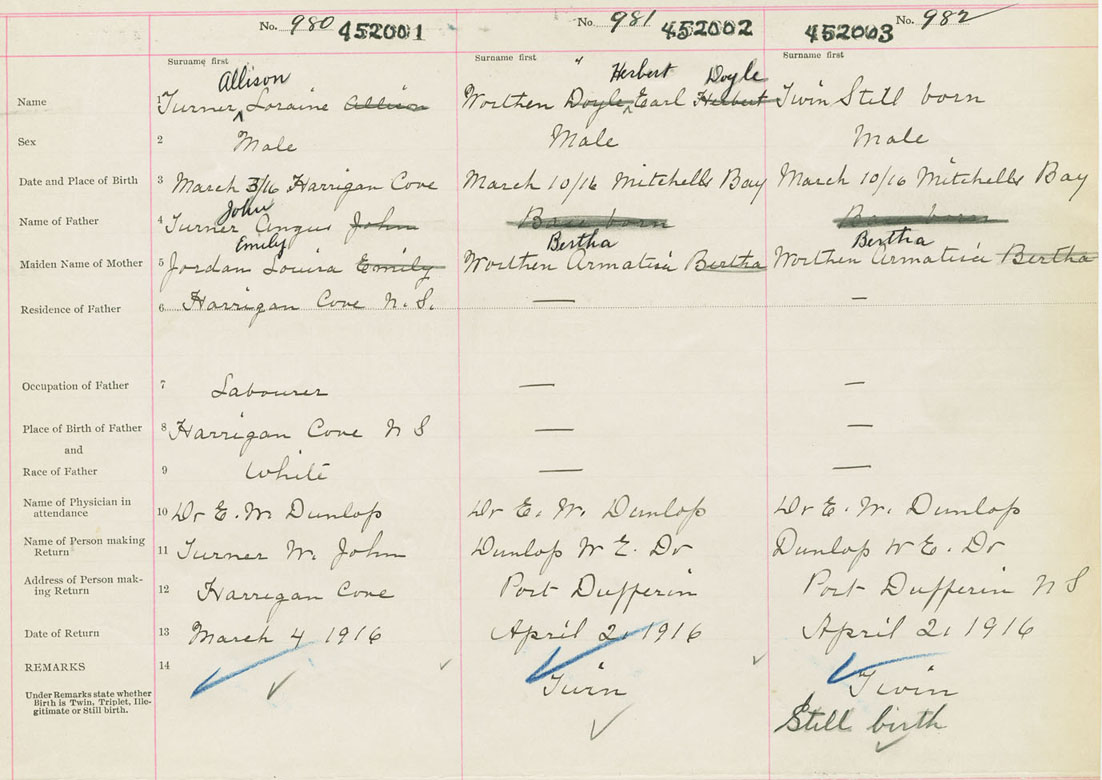 No. 980 452001 No. 981 452002 452003 No. 982
Surname first Surname first " Surname first
Allison Herbert Doyle
Name 1 Turner, Loraine Allison Worthen Doyle Earl Herbert Twin Still born
Sex 2 Male Male Male
Date and Place of Birth 3 March 3/16 Harrigan Cove March 10/16 Mitchells Bay March 10/16 Mitchells Bay
John
Name of Father 4 Turner Angus John Base born Base born
Emily Bertha Bertha
Maiden Name of Mother 5 Jordan Louisa Emily Worthen Armatia Bertha Worthen Armatia Bertha
Residence of Father 6 Harrigan Cove N.S. — —
Occupation of Father 7 Labourer — —
Place of Birth of Father 8 Harrigan Cove N S — —
and
Race of Father 9 White — —
Name of Physician in
attendance 10 Dr E. W. Dunlop Dr E. W. Dunlop Dr E. W. Dunlop
Name of Person making
Return 11 Turner W. John Dunlop W E. Dr Dunlop W E. Dr
Address of Person mak-
ing Return 12 Harrigan Cove Port Dufferin Port Dufferin N S
Date of Return 13 March 4 1916 April 2, 1916 April 2, 1916
REMARKS 14
Under Remarks state whether
Birth is Twin, Triplet, Ille-
gitimate or Still birth.
Twin Twin
Still birth